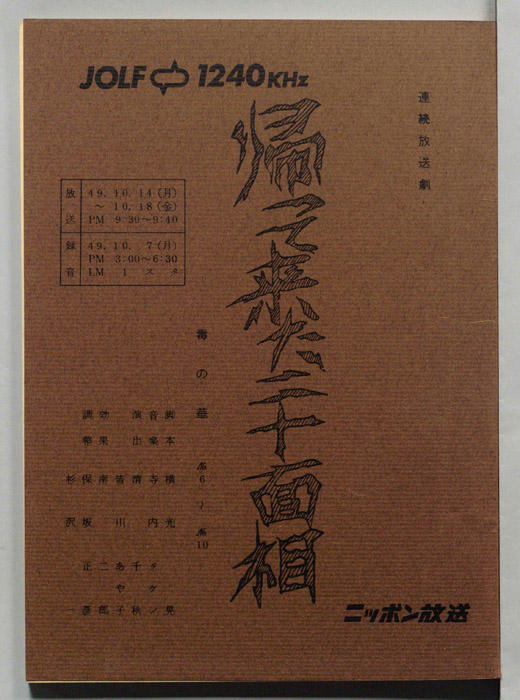 JOLF 1240KHz
連続放送劇
帰って来た二十面相
放送 49.10.14(月)
〜10.18(金)
PM 9:30〜9:40
録音 49.10.7(月)
PM 3:00〜6:30
LM 1スタ
毒の華 第6〜第10
脚本 横光晃
音楽 寺内タケシ
演出 清千秋
皆川あや子
効果 南二郎
調整 保坂正彦
杉沢一
ニッポン放送